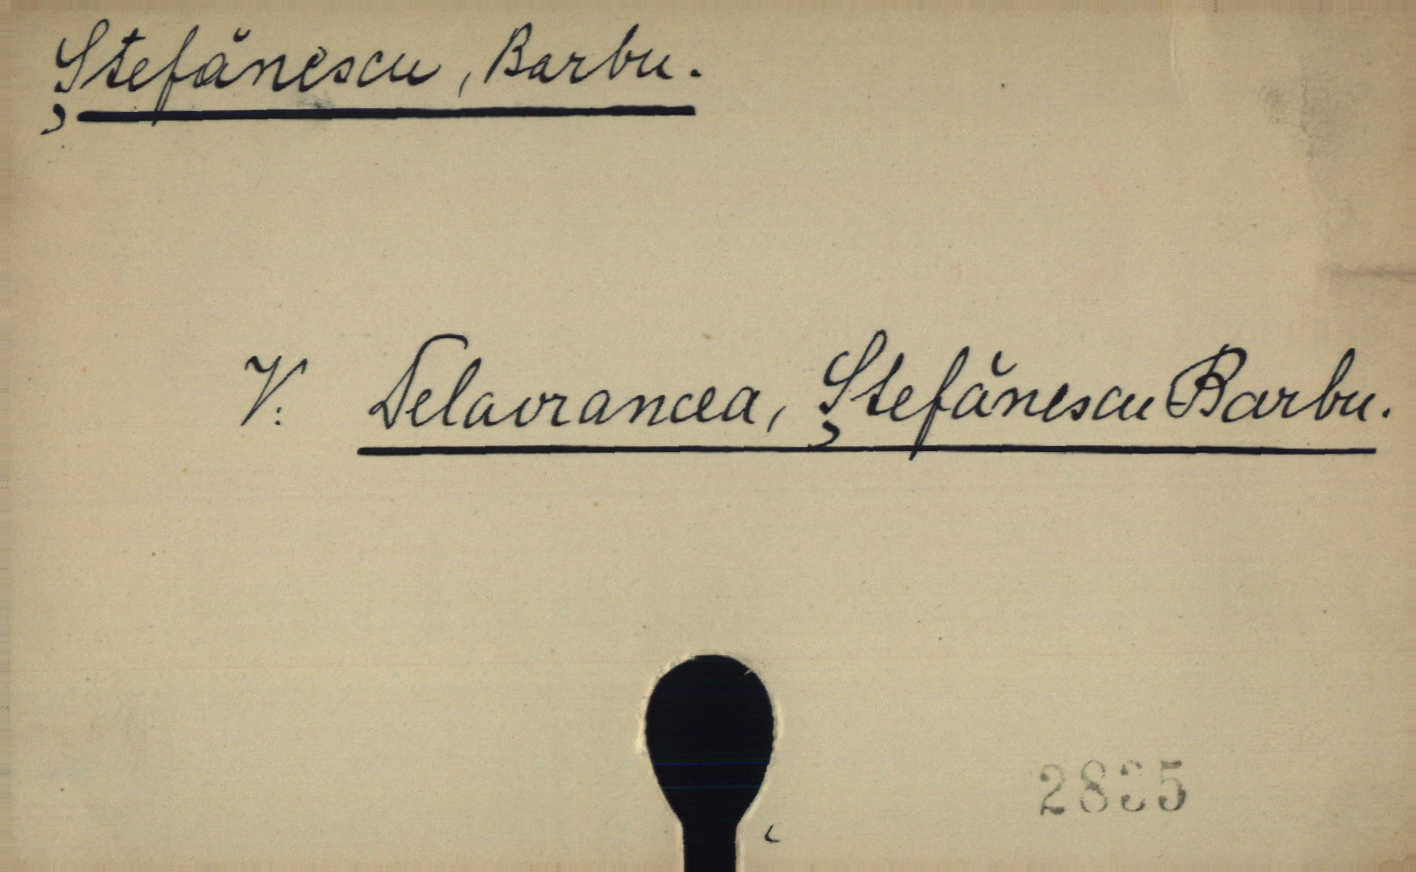 Ștefănescu, Barbu.
V. Delavrancea, Ștefănescu Barbu.
2835